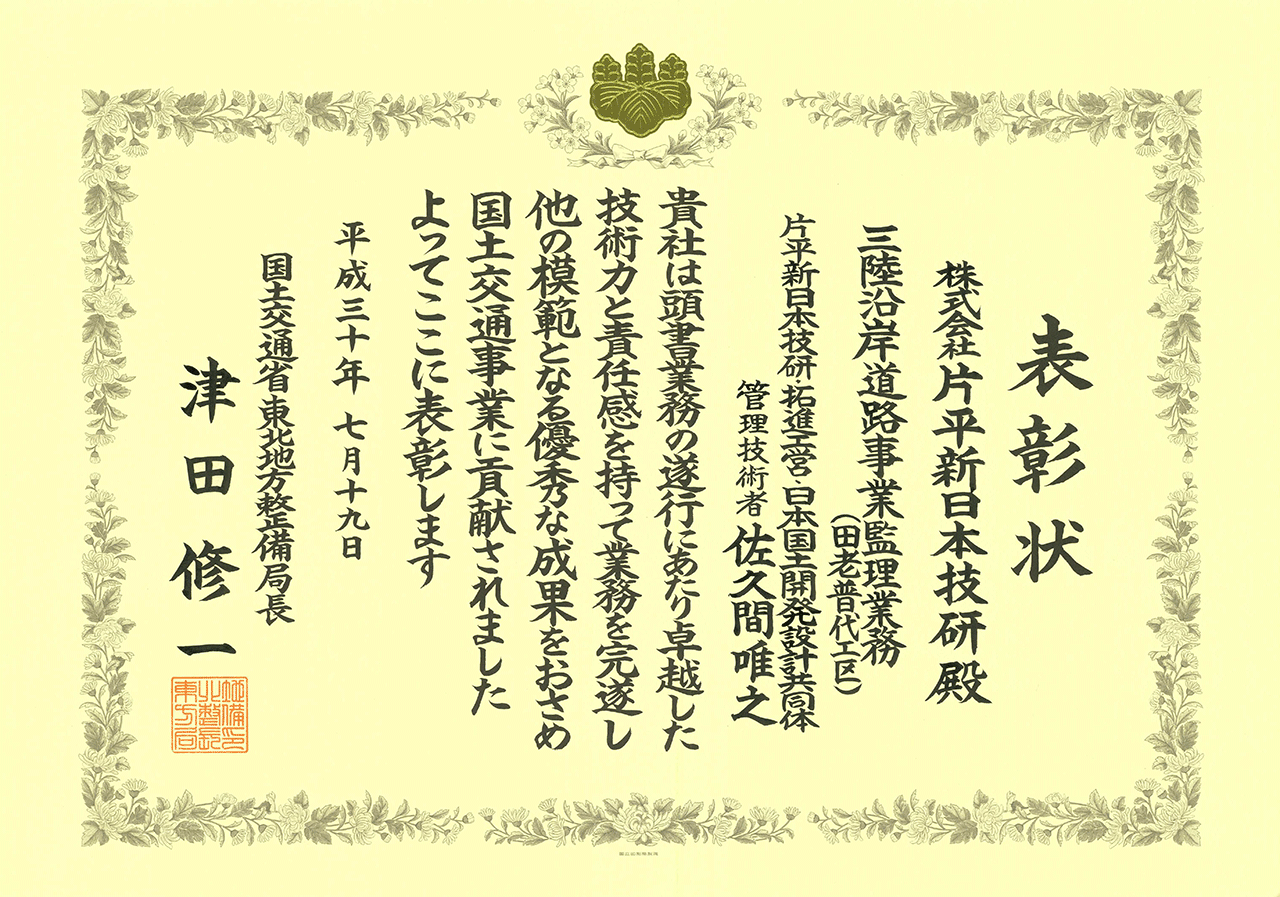 表彰状
株式会社片平新日本技研殿
三陸沿岸道路事業監理業務
(田老普代工区)
片平新日本技研・拓進工営・日本国土開発設計共同体
管理技術者 佐久間唯之
貴社は頭書業務の遂行にあたり卓越した
技術力と責任感を持って業務を完遂し
他の模範となる優秀な成果をおさめ
国土交通事業に貢献されました
よってここに表彰します
平成三十年 七月十九日
国土交通省東北地方整備局長
津田修一